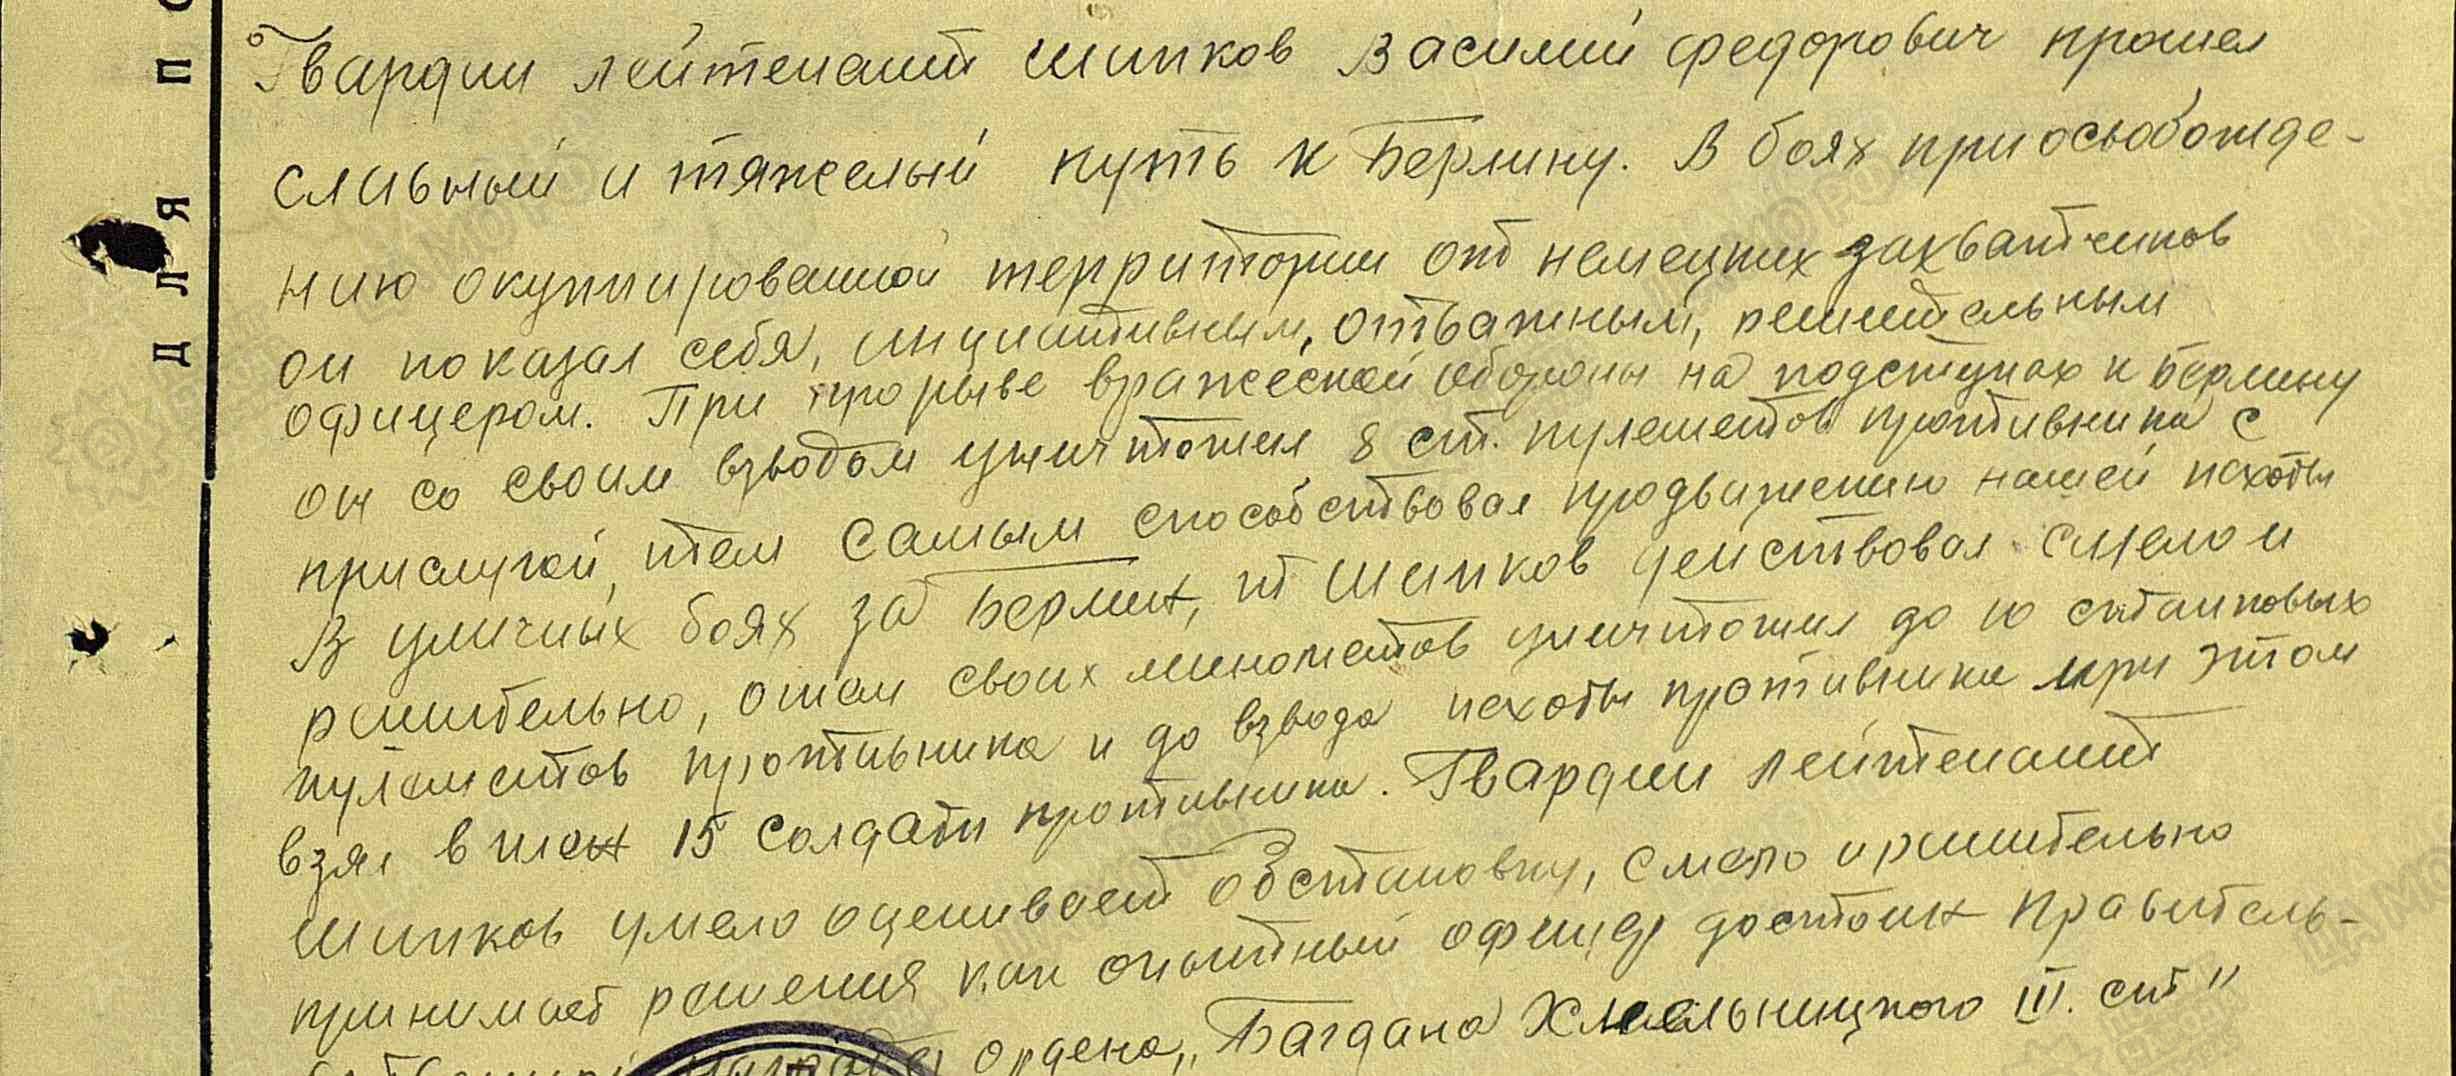 Д Л Я П П О
Гвардии лейтенант Шипков Василий Федорович прошел
славный и тяжелый путь к Берлину. В боях при освобожде-
нию окупированной территории от немецких захватчиков
он показал себя, инциативным, отважным, решительным
офицером. При прорыве вражеской обороны на подступах к Берлину
он со своим взводом уничтожил 8 ст. пулеметов противника с
прислугой, тем самым способствовал продвижению нашей пехоты
В уличных боях за Берлин, лт Шипков действовал смело и
решительно, огнем своих минометов уничтожил до 10 станковых
пулеметов противника и до взвода пехоты противника при этом
взял в плен 15 солдат противника. Гвардии лейтенант
Шипков умело оценивает обстановку, смело и решительно
принимает решения как опытный офицер достоин правитель-
ственной награды ордена „Багдана Хмельницкого III. ст"